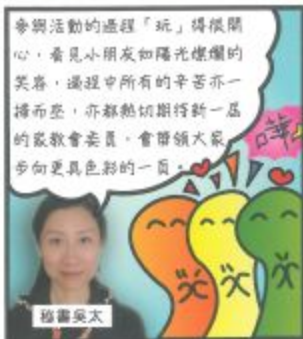 參與活動的過程「玩」得很開
心，看見小朋友如陽光燦爛的
笑容，過程中所有的辛苦亦一
掃而空，亦都熱切期待新一屆
的家教會委員，會帶領大家
步向更具色彩的一頁。
嘩
秘書吳太